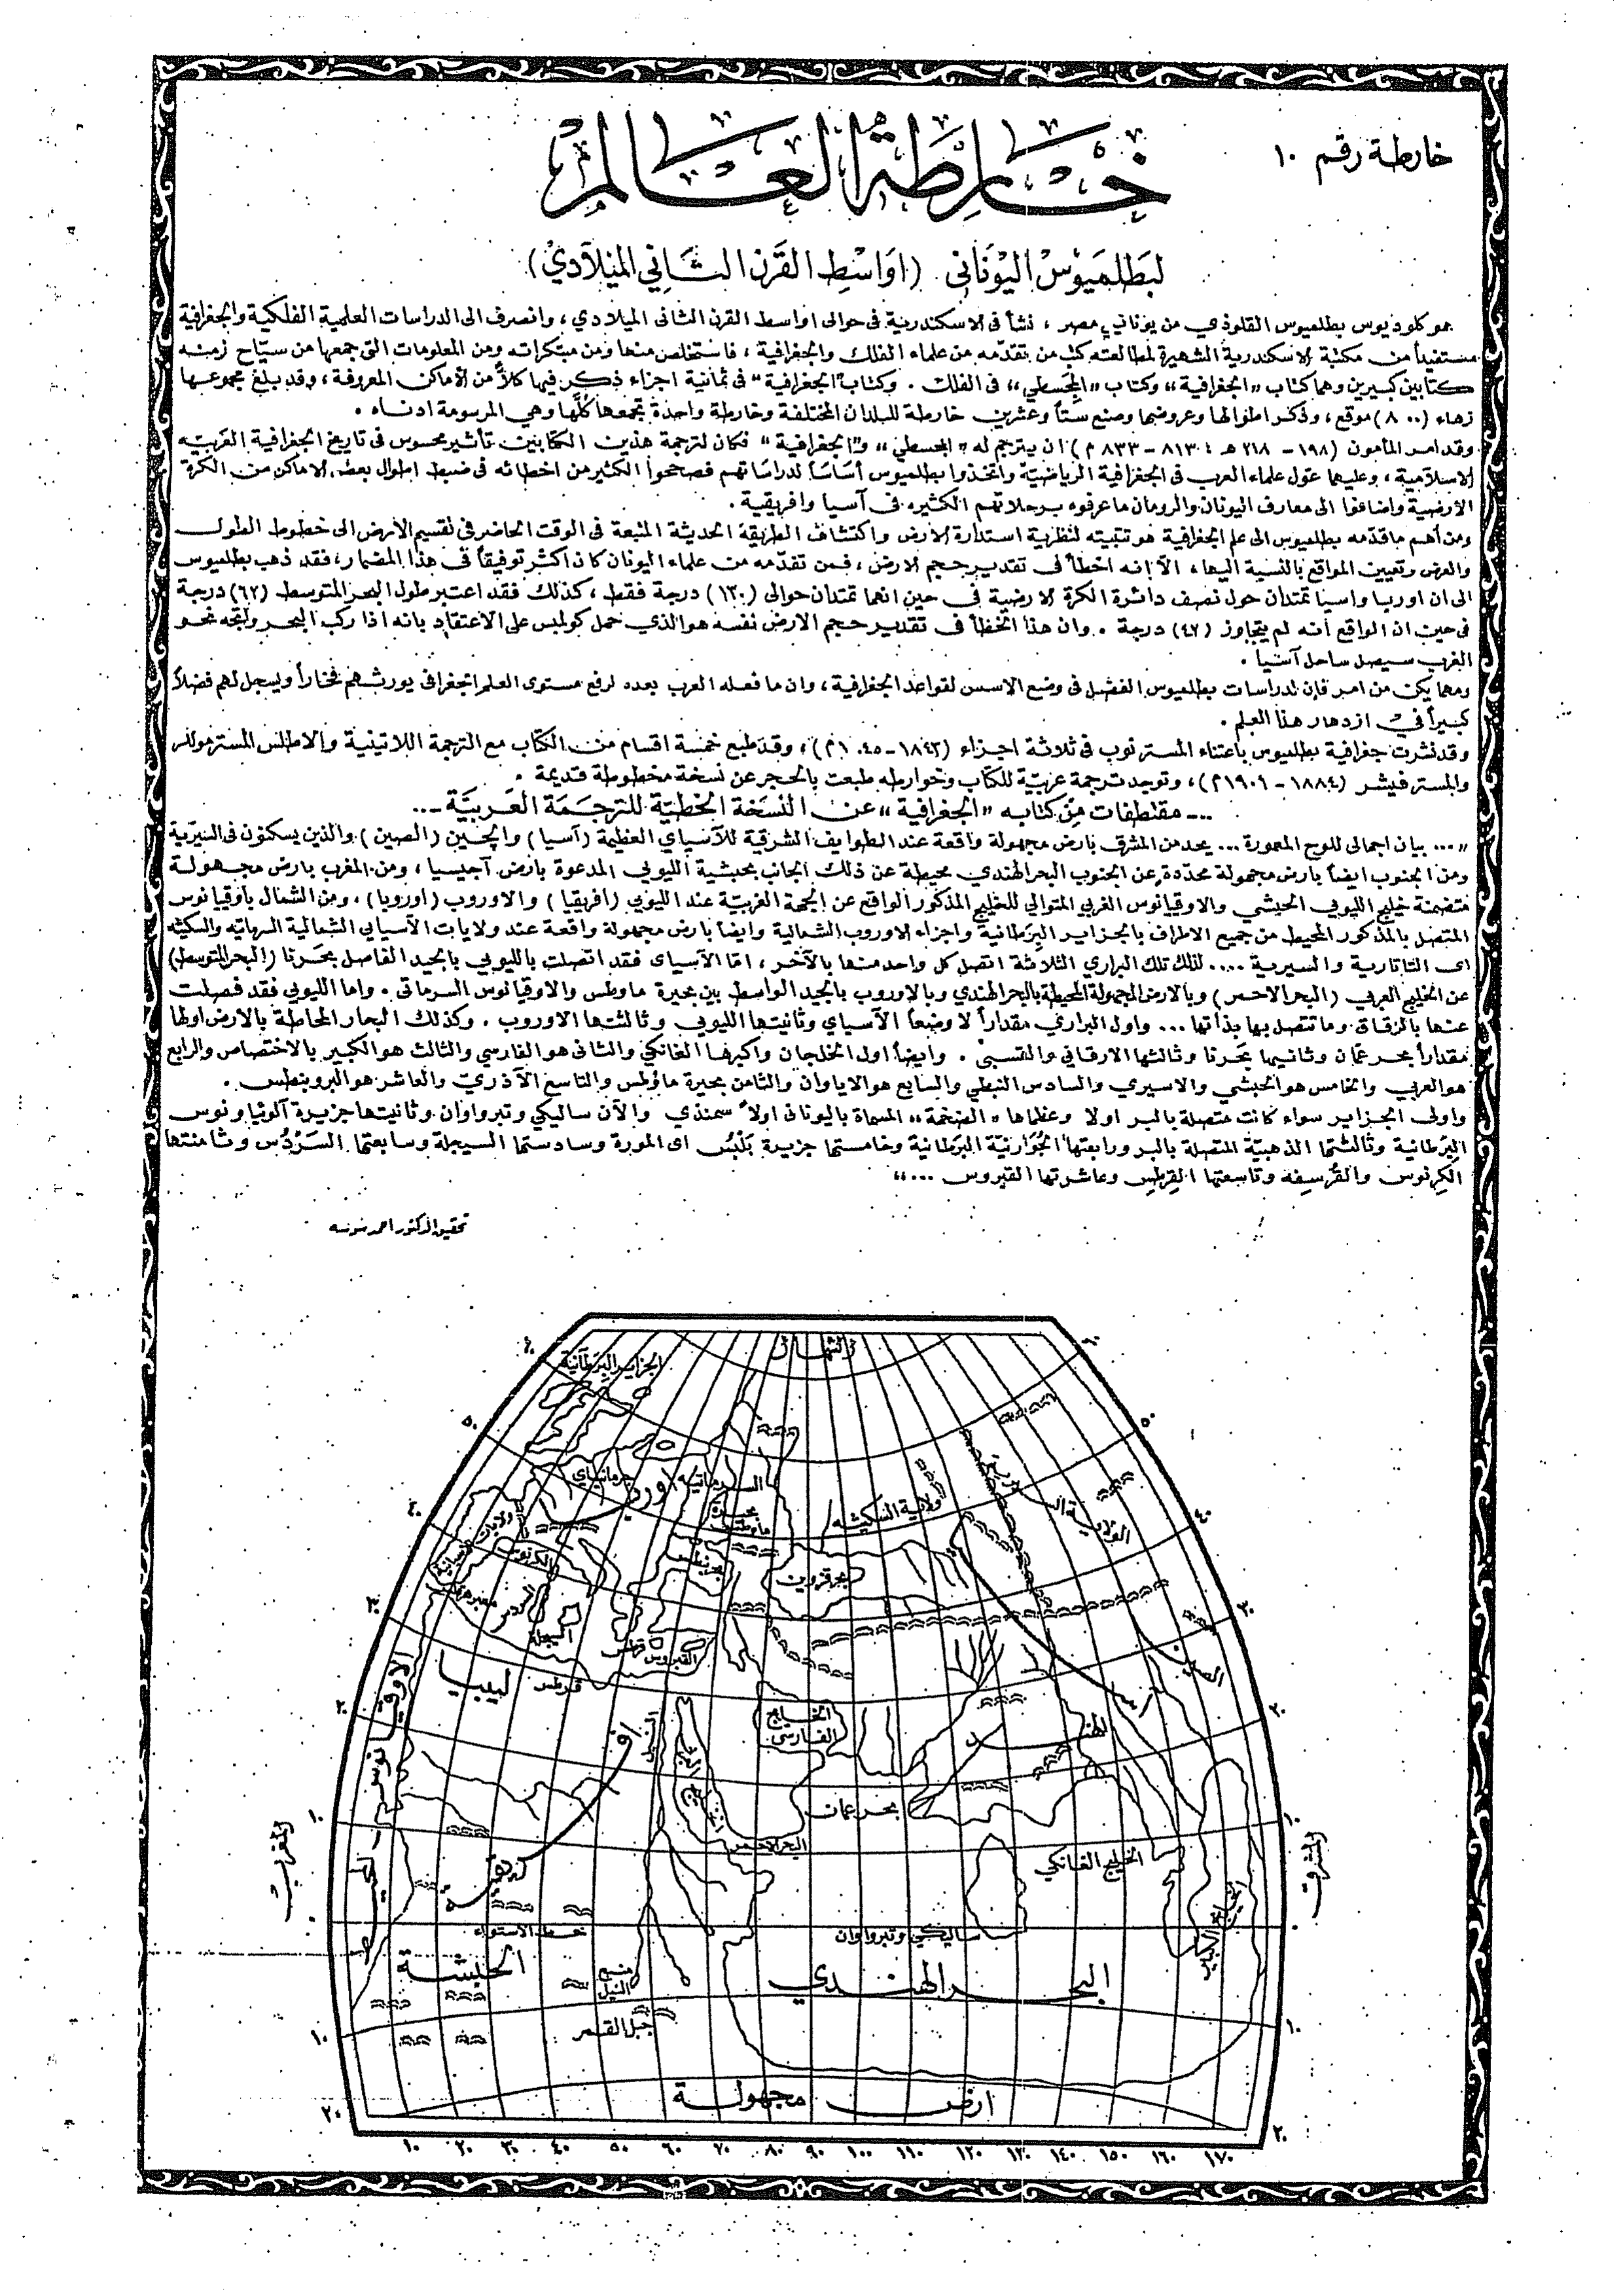 خارطة رقم ١٠
خارطة العالم
لبطلميوس اليوناني (اواسط القرن الثاني الميلادي)
هو كلوديوس بطلميوس القلوذي من يوناني مصر ، نشأ في الاسكندرية في حوالى اواسط القرن الثاني الميلادي ، وانصرف الى الدراسات العلمية الفلكية والجغرافية
مستفيداً من مكتبة الاسكندرية الشهيرة لمطالعته كتب من تقدّمه من علماء الفلك والجغرافية ، فاستخلص منها ومن مبتكراته ومن المعلومات التي جمعها من سيّاح زمنه
كتابين كبيرين وهما كتاب «الجغرافية» وكتاب «المجسطي» في الفلك . وكتاب "الجغرافية" في ثمانية اجزاء ذكر فيها كلاً من الاماكن المعروفة ، وقد بلغ مجموعها
زهاء (٨٠٠٠) موقع ، وذكر اطوالها وعروضها وصنع ستاً وعشرين خارطة للبلدان المختلفة وخارطة واحدة تجمعها كلّها وهي المرسومة ادناه .
وقد امر المأمون (١٩٨ - ٢١٨ هـ : ٨١٣ - ٨٣٣ م) ان يترجم له «المجسطي» و"الجغرافية" فكان لترجمة هذين الكتابين تأثير محسوس في تاريخ الجغرافية العربية
الاسلامية ، وعليهما عول علماء العرب في الجغرافية الرياضيّة واتخذوا بطلميوس أساساً لدراساتهم فصححوا الكثير من اخطائه في ضبط اطوال بعض الاماكن من الكرة
الارضية واضافوا الى معارف اليونان والرومان ما عرفوه برحلاتهم الكثيره في آسيا وافريقية .
ومن أهم ما قدّمه بطلميوس الى علم الجغرافية هو تثبيته لنظرية استدارة الارض واكتشاف الطريقة الحديثة المتبعة في الوقت الحاضر في تقسيم الأرض الى خطوط الطول
والعرض وتعيين المواقع بالنسبة اليها ، الاّ انه اخطأ في تقدير حجم الارض ، فمن تقدّمه من علماء اليونان كان اكثر توفيقاً في هذا المضمار ، فقد ذهب بطلميوس
الى ان اوربا واسيا تمتدان حول نصف دائرة الكرة الارضية في حين انهما تمتدان حوالى (١٣٠) درجة فقط ، كذلك فقد اعتبر طول البحر المتوسط (٦٢) درجة
في حين ان الواقع أنه لم يتجاوز (٤٢) درجة . وان هذا الخطأ في تقدير حجم الارض نفسه هو الذي حمل كولمبس على الاعتقاد بانه اذا ركب البحر واتجه نحو
الغرب سيصل ساحل آسيا .
ومهما يكن من امر فإن لدراسات بطلميوس الفضل في وضع الاسس لقواعد الجغرافية ، وان ما فعله العرب بعده لرفع مستوى العلم الجغرافي يورثهم فخاراً ويسجل لهم فضلاً
كبيراً في ازدهار هذا العلم .
وقد نشرت جغرافية بطلميوس باعتناء المستر نوب في ثلاثة اجزاء ، وقد طبع خمسة اقسام من الكتاب مع الترجمة اللاتينية والاطلس المستر مولر
والمستر فيشر (١٨٨٤ - ١٩٠١م) ، وتوجد ترجمة عربيّة للكتاب وخوارطه طبعت بالحجر عن نسخة مخطوطة قديمة .
... مقتطفات من كتابه «الجغرافية» عن النسخة الخطيّة للترجمة العربيّة ...
«... بيان اجمالى للوح المعمورة ... يحد من المشرق بارض مجهولة واقعة عند الطوايف الشرقية للآسياي العظيمة (آسيا) والچنين (الصين) والذين يسكنون في السيريّة
ومن الجنوب ايضاً بارض مجهولة محدّدة عن الجنوب البحر الهندي محيطة عن ذلك الجانب بحبشية الليوبي المدعوة بارض آجيسيا ، ومن المغرب بارض مجهولة
متضمنة خليج الليوبي الحبشي والاوقيانوس الغربي المتوالي للخليج المذكور الواقع عن الجهة الغربيّة عند الليوبي (افريقيا) والاوروب (اوروپا) ، ومن الشمال باوقيانوس
المتصل بالمذكور المحيط من جميع الاطراف بالجزاير البرطانية واجزاء الاوروب الشمالية وايضاً بارض مجهولة واقعة عند ولايات الآسيايي الشمالية السرماتيه والسكيثه
اى التاتارية والسيرية .... لذلك تلك البراري الثلاثة اتصل كل واحد منها بالآخر ، امّا الآسياى فقد اتصلت بالليوبي بالجيد الفاصل بحرنا (البحر المتوسط)
عن الخليج العربي (البحر الاحمر) وبالارض المجهولة المحيطة بالبحر الهندي وبالاوروب بالجيد الواسط بين بحيرة ماوطس والاوقيانوس السرماتي . واما الليوبي فقد فصلت
عنها بالزقاق وما تتصل بها بذاتها ... واول البراري مقداراً لا وضعاً الآسياي وثانيتها الليوبي وثالثتها الاوروب . وكذلك البحار المحاطة بالارض اولها
مقداراً بحر عمان وثانيها بحرنا وثالثها الارقاني والقسبي . وايضاً اول الخلجان واكبرها الغانكي والثاني هو الفارسي والثالث هو الكبير بالاختصاص والرابع
هو العربي والخامس هو الحبشي والاسيري والسادس النبطي والسابع هو الاياوان والثامن بحيرة ماؤطس والتاسع الآذريّ والعاشر هو البروبنطس .
واولى الجزاير سواء كانت متصلة بالبر اولا وعظماها «الضخمة» المسماة باليوناني اولاً سمنذي والآن ساليكي وتبرواوان وثانيتها جزيرة آلوئيا ونوس
البرطانية وثالثتها الذهبيّة المتصلة بالبر ورابعتها الجوارنيّة البرطانية وخامستها جزيرة بلبس اى المورة وسادستها السيجلة وسابعتها السردُس وثامنتها
الكرنوس والقرسيفه وتاسعتها القرطس وعاشرتها القبروس ...»
تحقيق الدكتور احمد سوسه
الشمال
الجزاير البرطانية
٦٠ ٦٠
٥٠ ٥٠
جرمانياي
السرماتيه
اوروپ
بحيرة ماوطس
ولاية السكيثه
٤٠ ٤٠
ولايات
الكرنوس
بحر قزوين
السردس
السيجلة
القبروس
٣٠ ٣٠
الصين
ليبيا
قرطس
٢٠ ٢٠
النيل
الخليج الفارسي
الهند
افريقية
الخليج العربي
بحر عمان
البحر الاحمر
الخليج الغانكي
١٠ ١٠
المغرب
المشرق
الاوقيانوس
الخليج الكبير
٠ ٠
خط الاستواء
ساليكي وتبرواوان
الحبشة
منبع النيل
البحر الهندي
جبل القمر
١٠ ١٠
ارض مجهولة
٢٠ ٢٠
١٠ ٢٠ ٣٠ ٤٠ ٥٠ ٦٠ ٧٠ ٨٠ ٩٠ ١٠٠ ١١٠ ١٢٠ ١٣٠ ١٤٠ ١٥٠ ١٦٠ ١٧٠